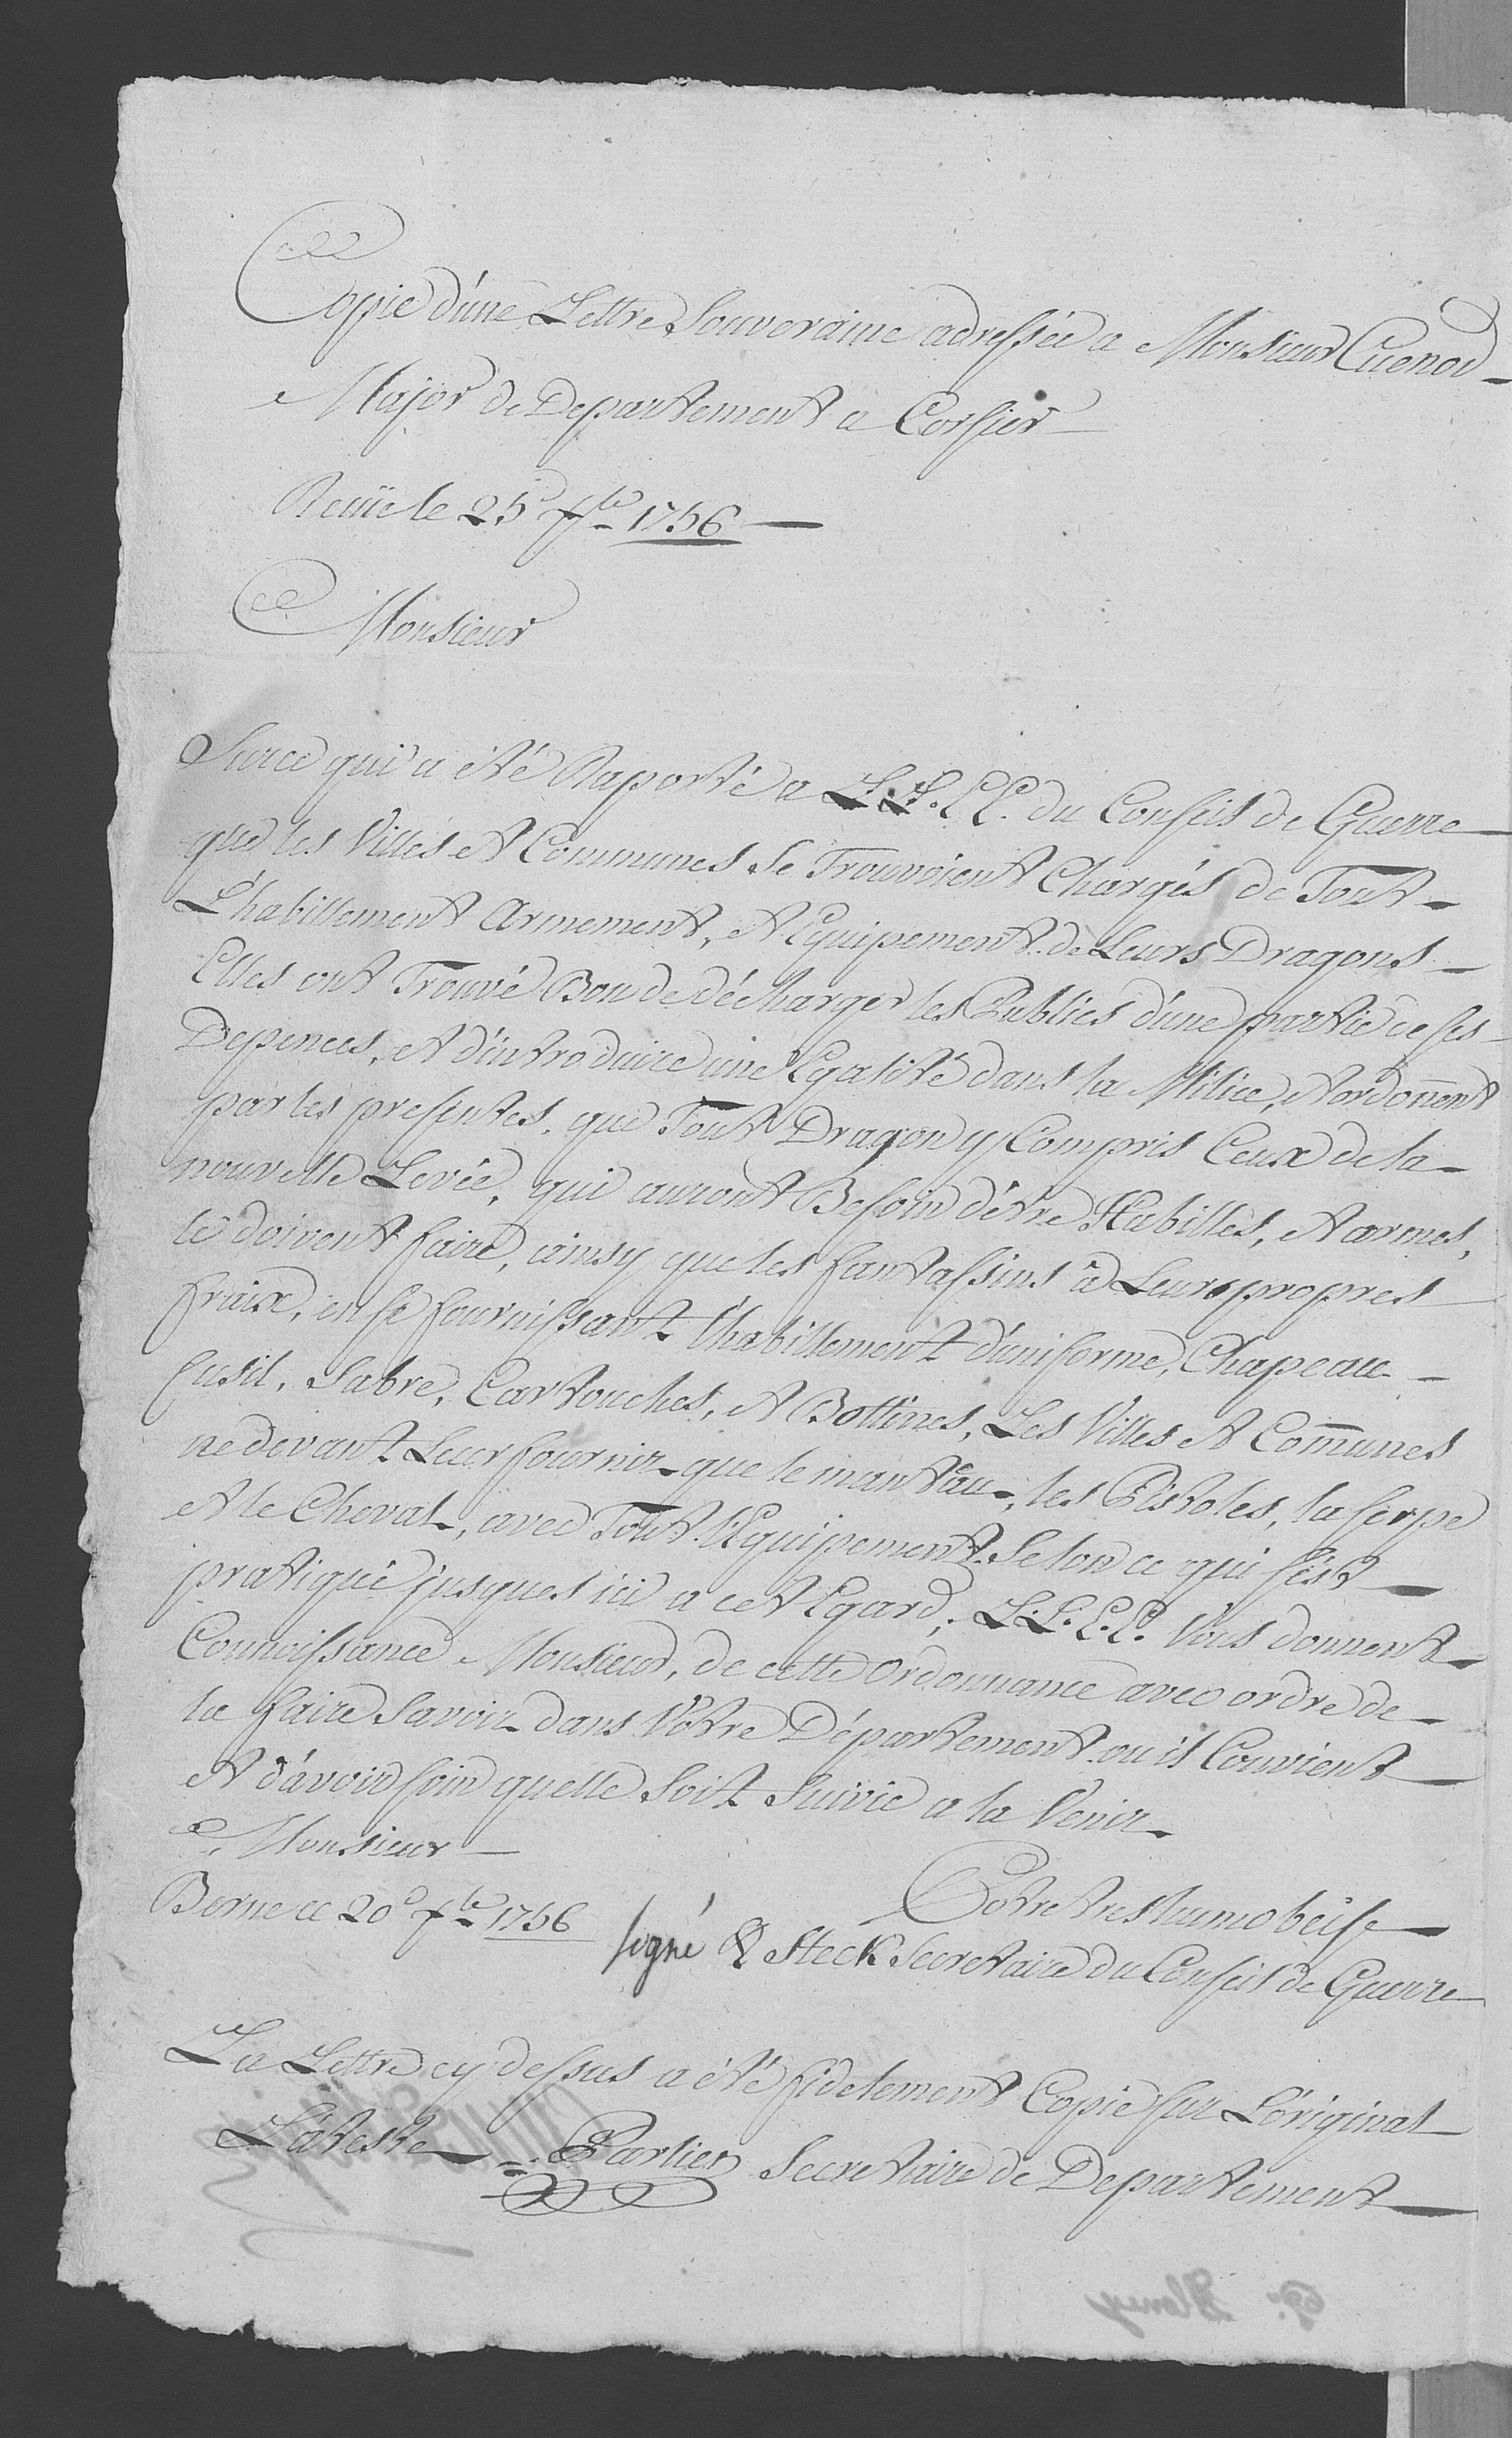 Copie d'une Lettre Souveraine adressée a Monsieur Cuenod
Major de Departement a Corsier
Recüe le 25e 7bre 1756
Monsieur
Sur ce qui a été Raporté a L.L.E.E. du Conseil de Guerre
que les Villes et Communes se Trouvoient Chargés de Tout
L'habillement Armement, et Equipement de Leurs Dragons
Elles ont Trouvé Bon de décharger les Publics d'une partie de ses
Depences, et d'introduire une Egalité dans la Milice, et ordonnent
par les presentes, que Tout Dragon y Compris Ceux de la
nouvelle Levée, qui auront Besoin d'étre Habillés, et armes,
le doivent faire, ainsy que les fantassins â Leurs propres
fraix, en se fournissant l'habillement d'uniforme, Chapeau
fusil, Sabre, Cartouches, et Bottines, Les Villes et Communes
ne devant Leur fournir que le mantau, les Pistoles, la serpe
et le Cheval, avec Tout l'Equipement Selon ce qui s'est
pratiqué jusques ici a cet Egard; L.L.E.E. Vous donnent
Connoissance Monsieur, de cette Ordonnance avec ordre de
la faire Savoir dans Vôtre Département ou il Convient
et d'avoir soin quelle Soit Suivie a la Venir
Monsieur
Votre tres hum obeiss
Berne ce 20e 7bre 1756
signé Steck Secretaire du Conseil de Guerre
La Lettre cy dessus a été fidelement Copie sur L'original
L'atteste Secretaire de Departement